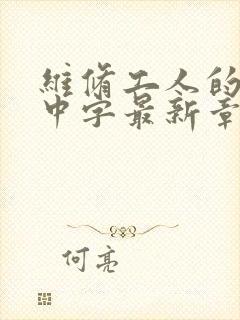 維脩工人的
中字最新章
何亮